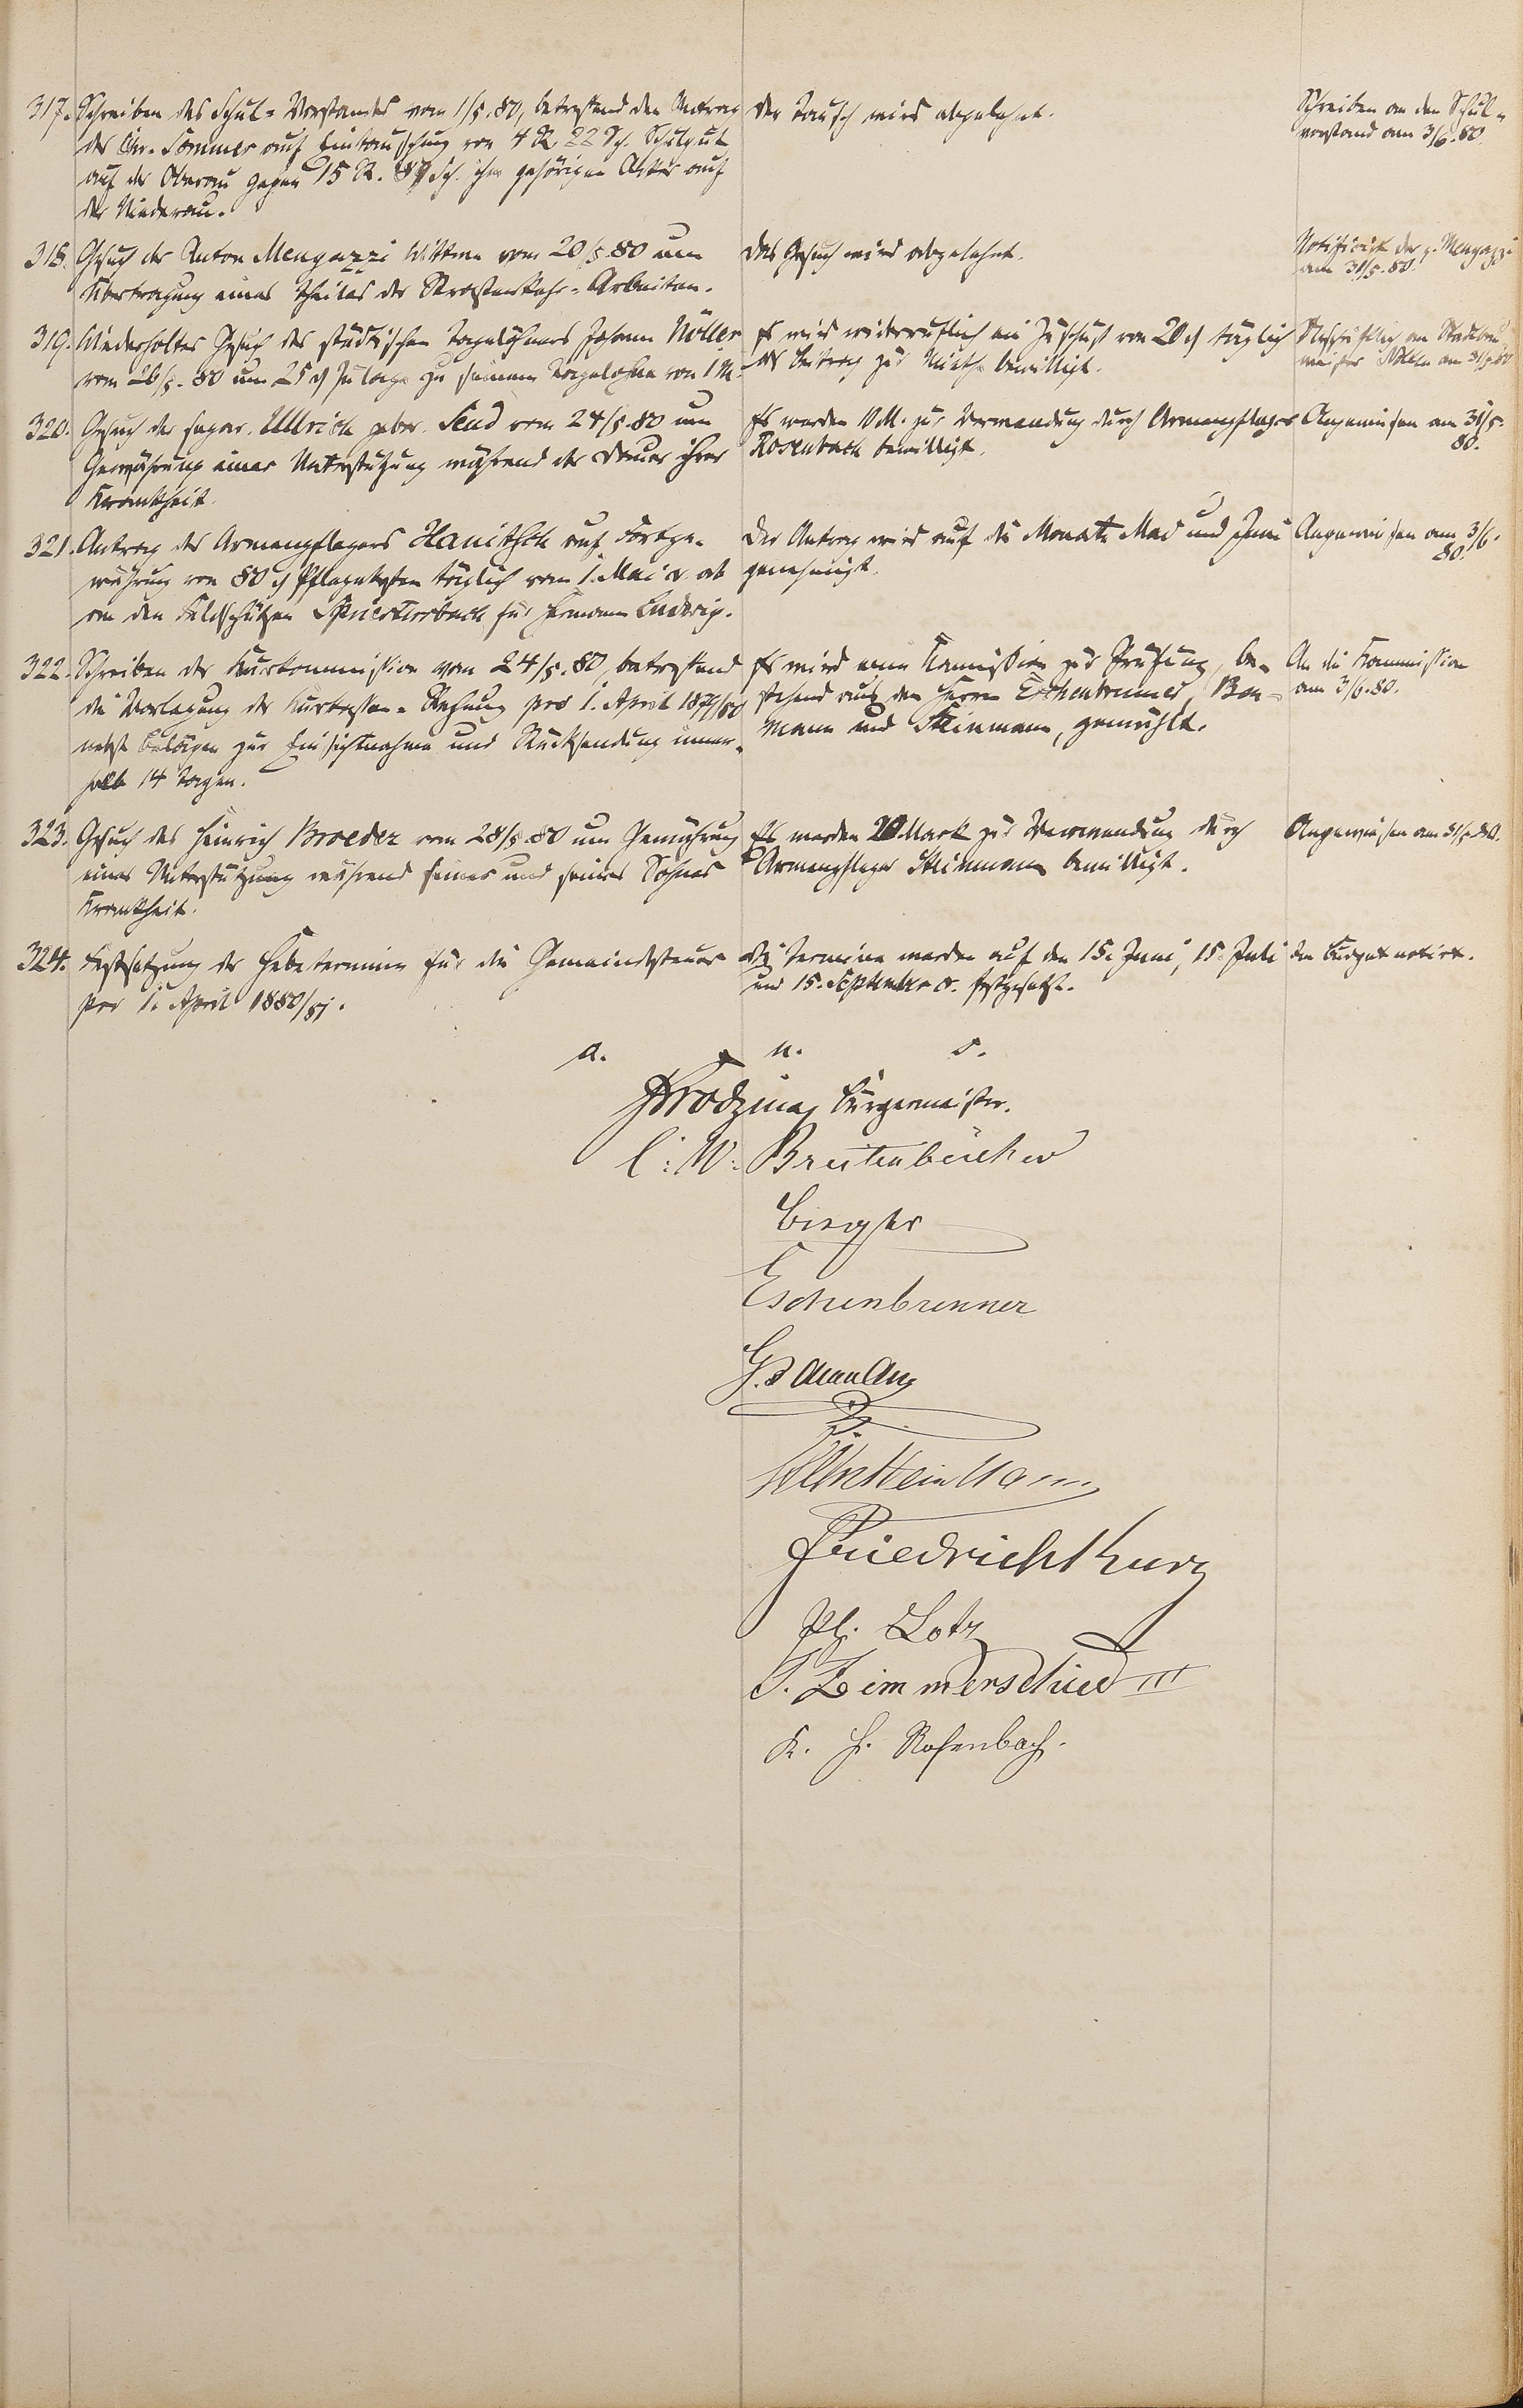 317. Schreiben des Schul-Vorstandes vom 1/5.80, betreffend den Antrag
des Chr. Sommer auf Eintauschung von 4 R. 22 Sch. Schulgut
auf der Oberau gegen 15 R. 87 Sch. ihm gehörigen Acker auf
der Niederau.
Der Tausch wird abgelehnt.
Schreiben an den Schul-
vorstand am 3/6.80.
318. Gesuch der Anton Mengazzi Wittwe vom 20/5.80 um
Übertragung eines Theiles der Strassenkehr-Arbeiten.
Das Gesuch wird abgelehnt.
Notificirt der p. Mengazzi
am 31/5.80.
319. Wiederholtes Gesuch des städtischen Tagelöhners Johann Nöller
vom 26/5.80 um 25 ₰ Zulage zu seinem Tagelohn von 1 M.
Es wird widerruflich ein Zuschuß von 20 ₰ täglich
als Beitrag zur Miethe bewilligt.
am 31/5.80
320. Gesuch der separ. Ullrich gebor. Seud vom 24/5.80 um
Gewährung einer Unterstützung während der Dauer ihrer
Krankheit.
Es werden 10 M. zur Verwendung durch Armenpfleger
Rosenbach bewilligt.
Angewiesen am 31/5.
80.
321. Antrag des Armenpflegers Hanitsch auf Fortge-
währung von 80 ₰ Pflegekosten täglich vom 1. Mai cr. ab
an den Feldschützen Spriestersbach für Hermann Ludwig.
Der Antrag wird auf die Monate Mai und Juni
genehmigt.
Angewiesen am 3/6.
80.
322. Schreiben der Kurkommission vom 24/5.80, betreffend
die Vorlegung der Kurkassen-Rechnung pro 1. April 1879/80
nebst Belägen zur Einsichtnahme und Rücksendung inner-
halb 14 Tagen.
Es wird eine Kommission zur Prüfung, be-
stehend aus den Herrn Eschenbrenner, Bau-
mann und Steinmann, gewählt.
An die Kommission
am 3/6.80.
323. Gesuch des Heinrich Broeder vom 28/5.80 um Gewährung
einer Unterstützung während seiner und seines Sohnes
Krankheit.
Es werden 20 Mark zur Verwendung durch
Armenpfleger Steinmann bewilligt.
Angewiesen am 31/5.80.
324. Festsetzung der Hebetermine für die Gemeindesteuer
pro 1. April 1880/81.
Die Termine werden auf den 15. Juni, 15. Juli
und 15. September cr. festgesetzt.
Im Budget notirt.
a. u. s.
Bürgermeister.
C: W: Breitenbücher
Eschenbrenner
Wilh Steinmann
Friedrich Kurz
Ph. Lotz
P. Zimmerschied III
K. H. Rosenbach.